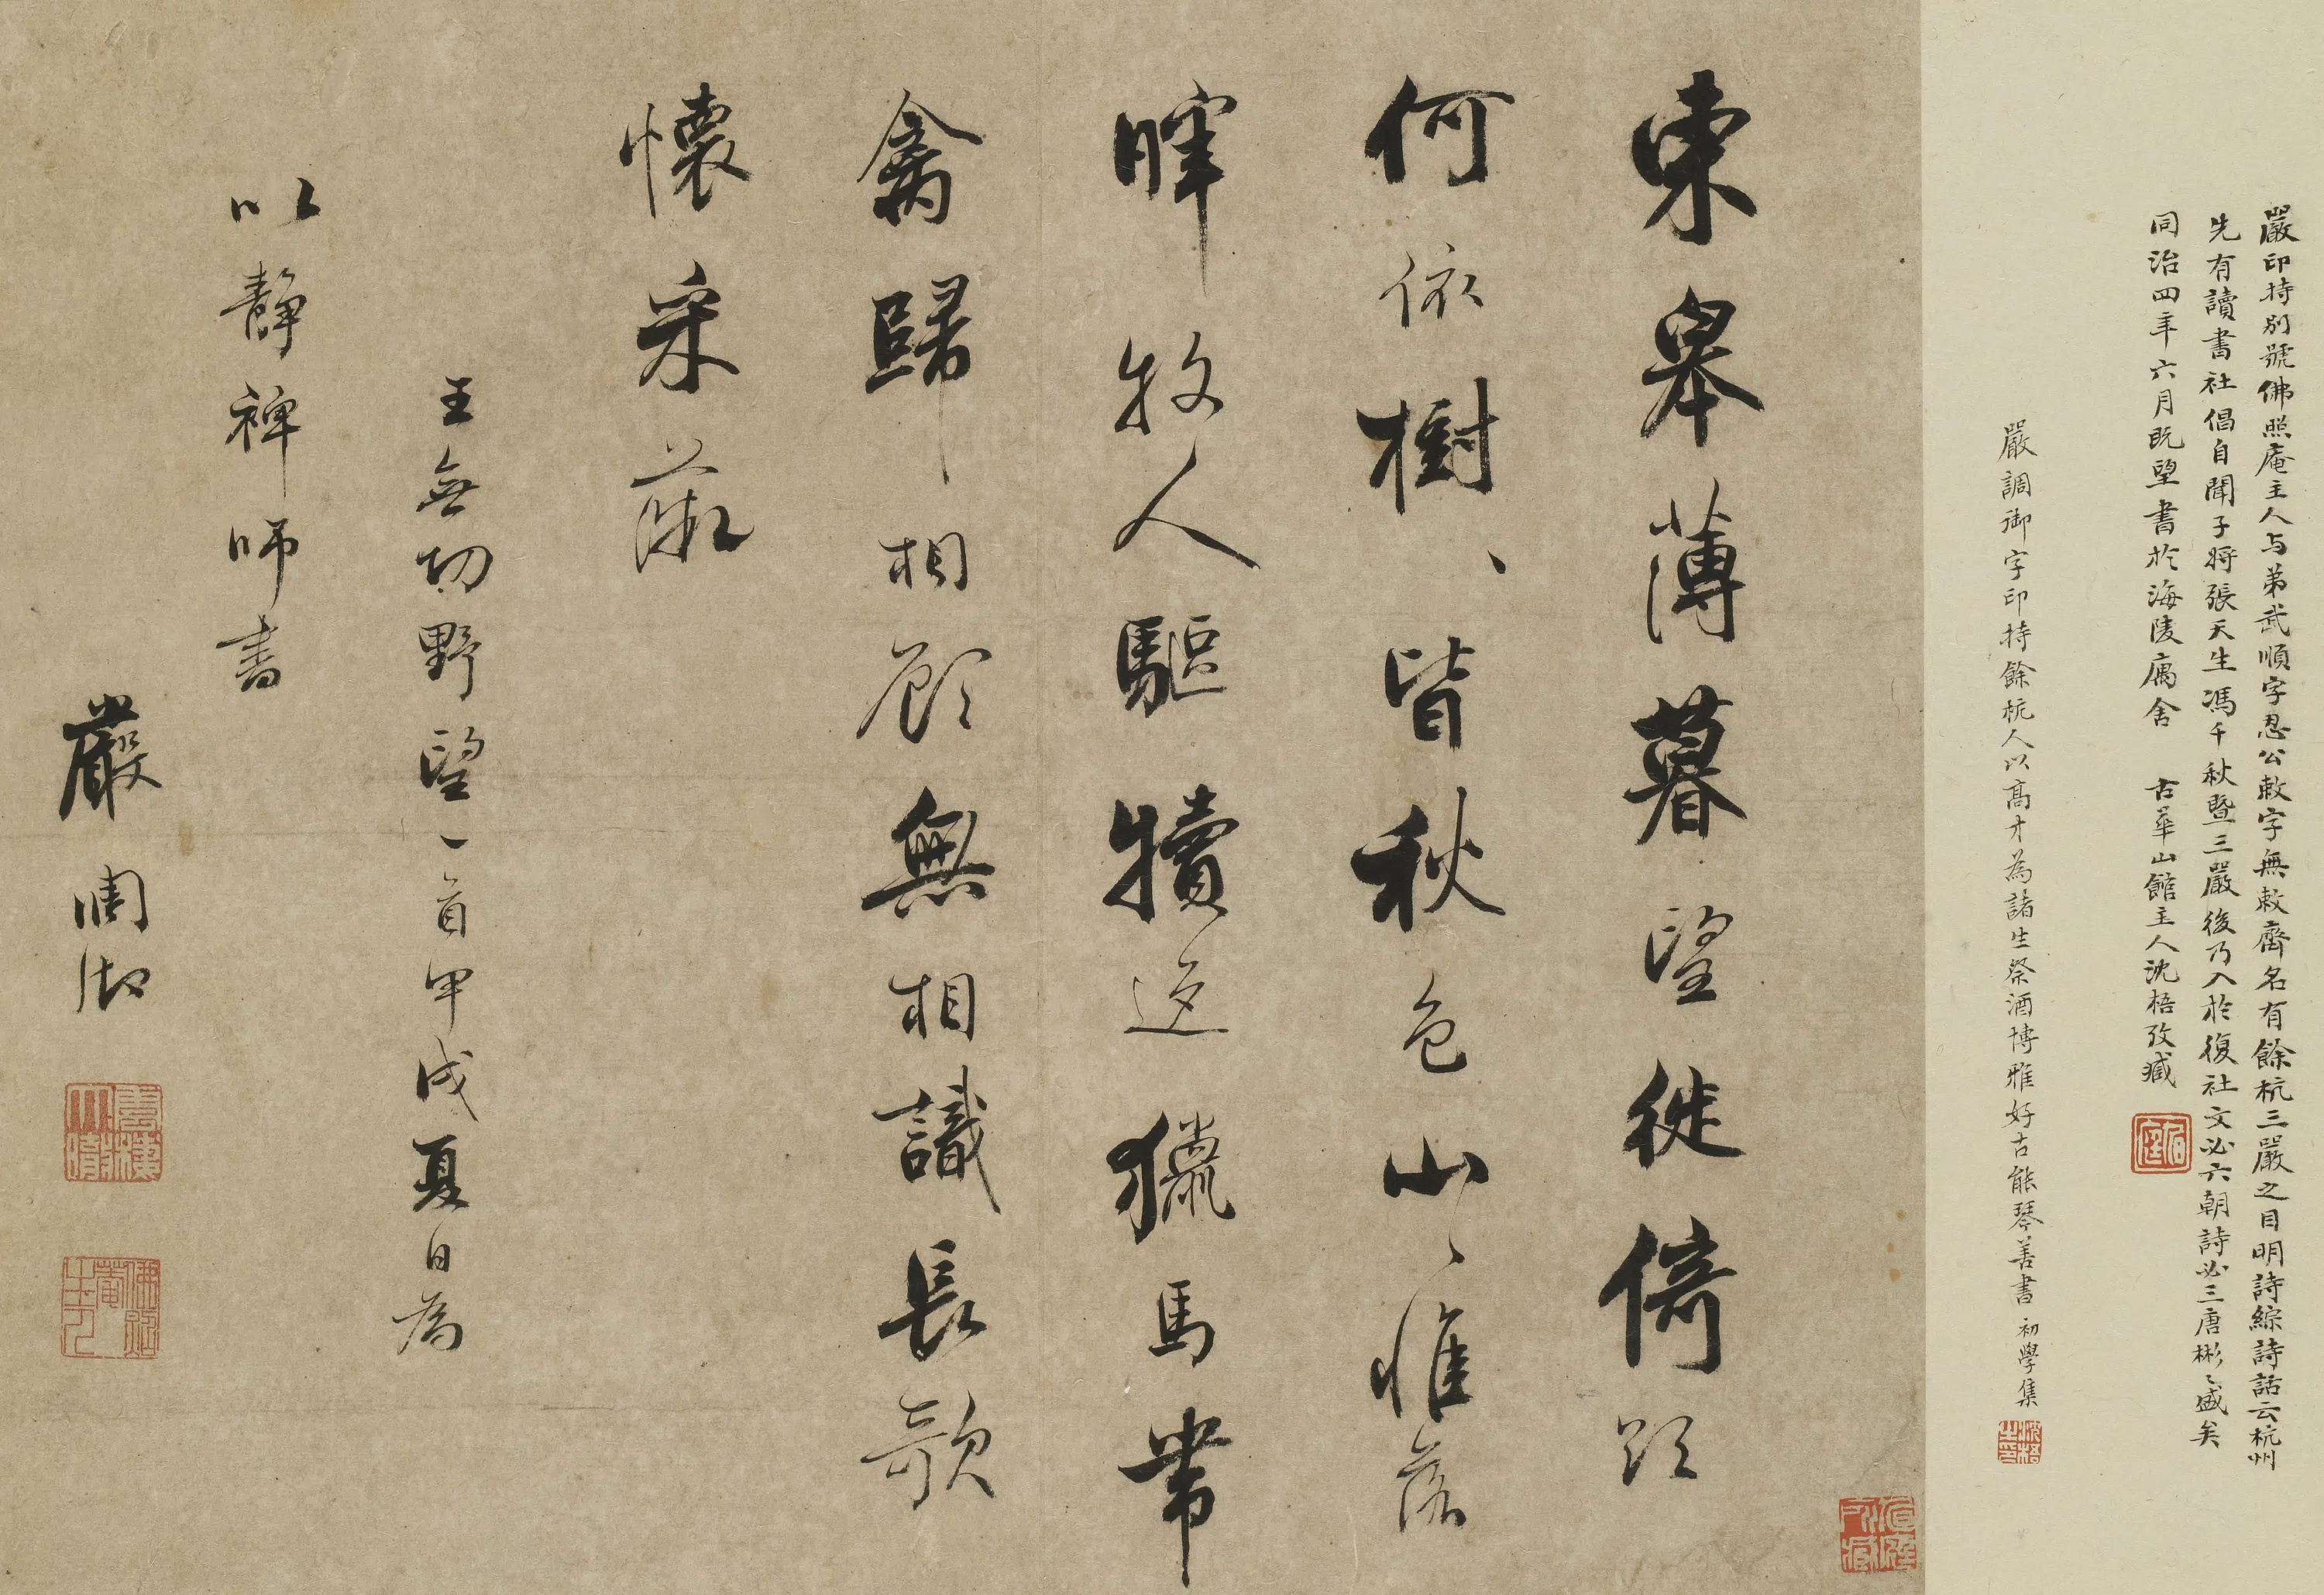 嚴印持別號佛照庵主人与弟武順字忍公敕字無敕齊名有餘杭三嚴之目明詩綜詩話云杭州
先有讀書社倡自聞子將張天生馮千秋暨三嚴後乃入於復社文必六朝詩必三唐彬〻盛矣
同治四年六月既望書於海陵寓舍 古華山館主人沈梧攷藏
嚴調御字印持餘杭人以高才為諸生祭酒博雅好古能琴善書 初學集
東皋薄暮望徙倚欲
何依樹〻皆秋色山〻惟落
暉牧人驅犢返獵馬帶
禽歸相顧無相識長歌
懷采薇
王無功野望一首甲戌夏日為
以靜禪師書
嚴調御